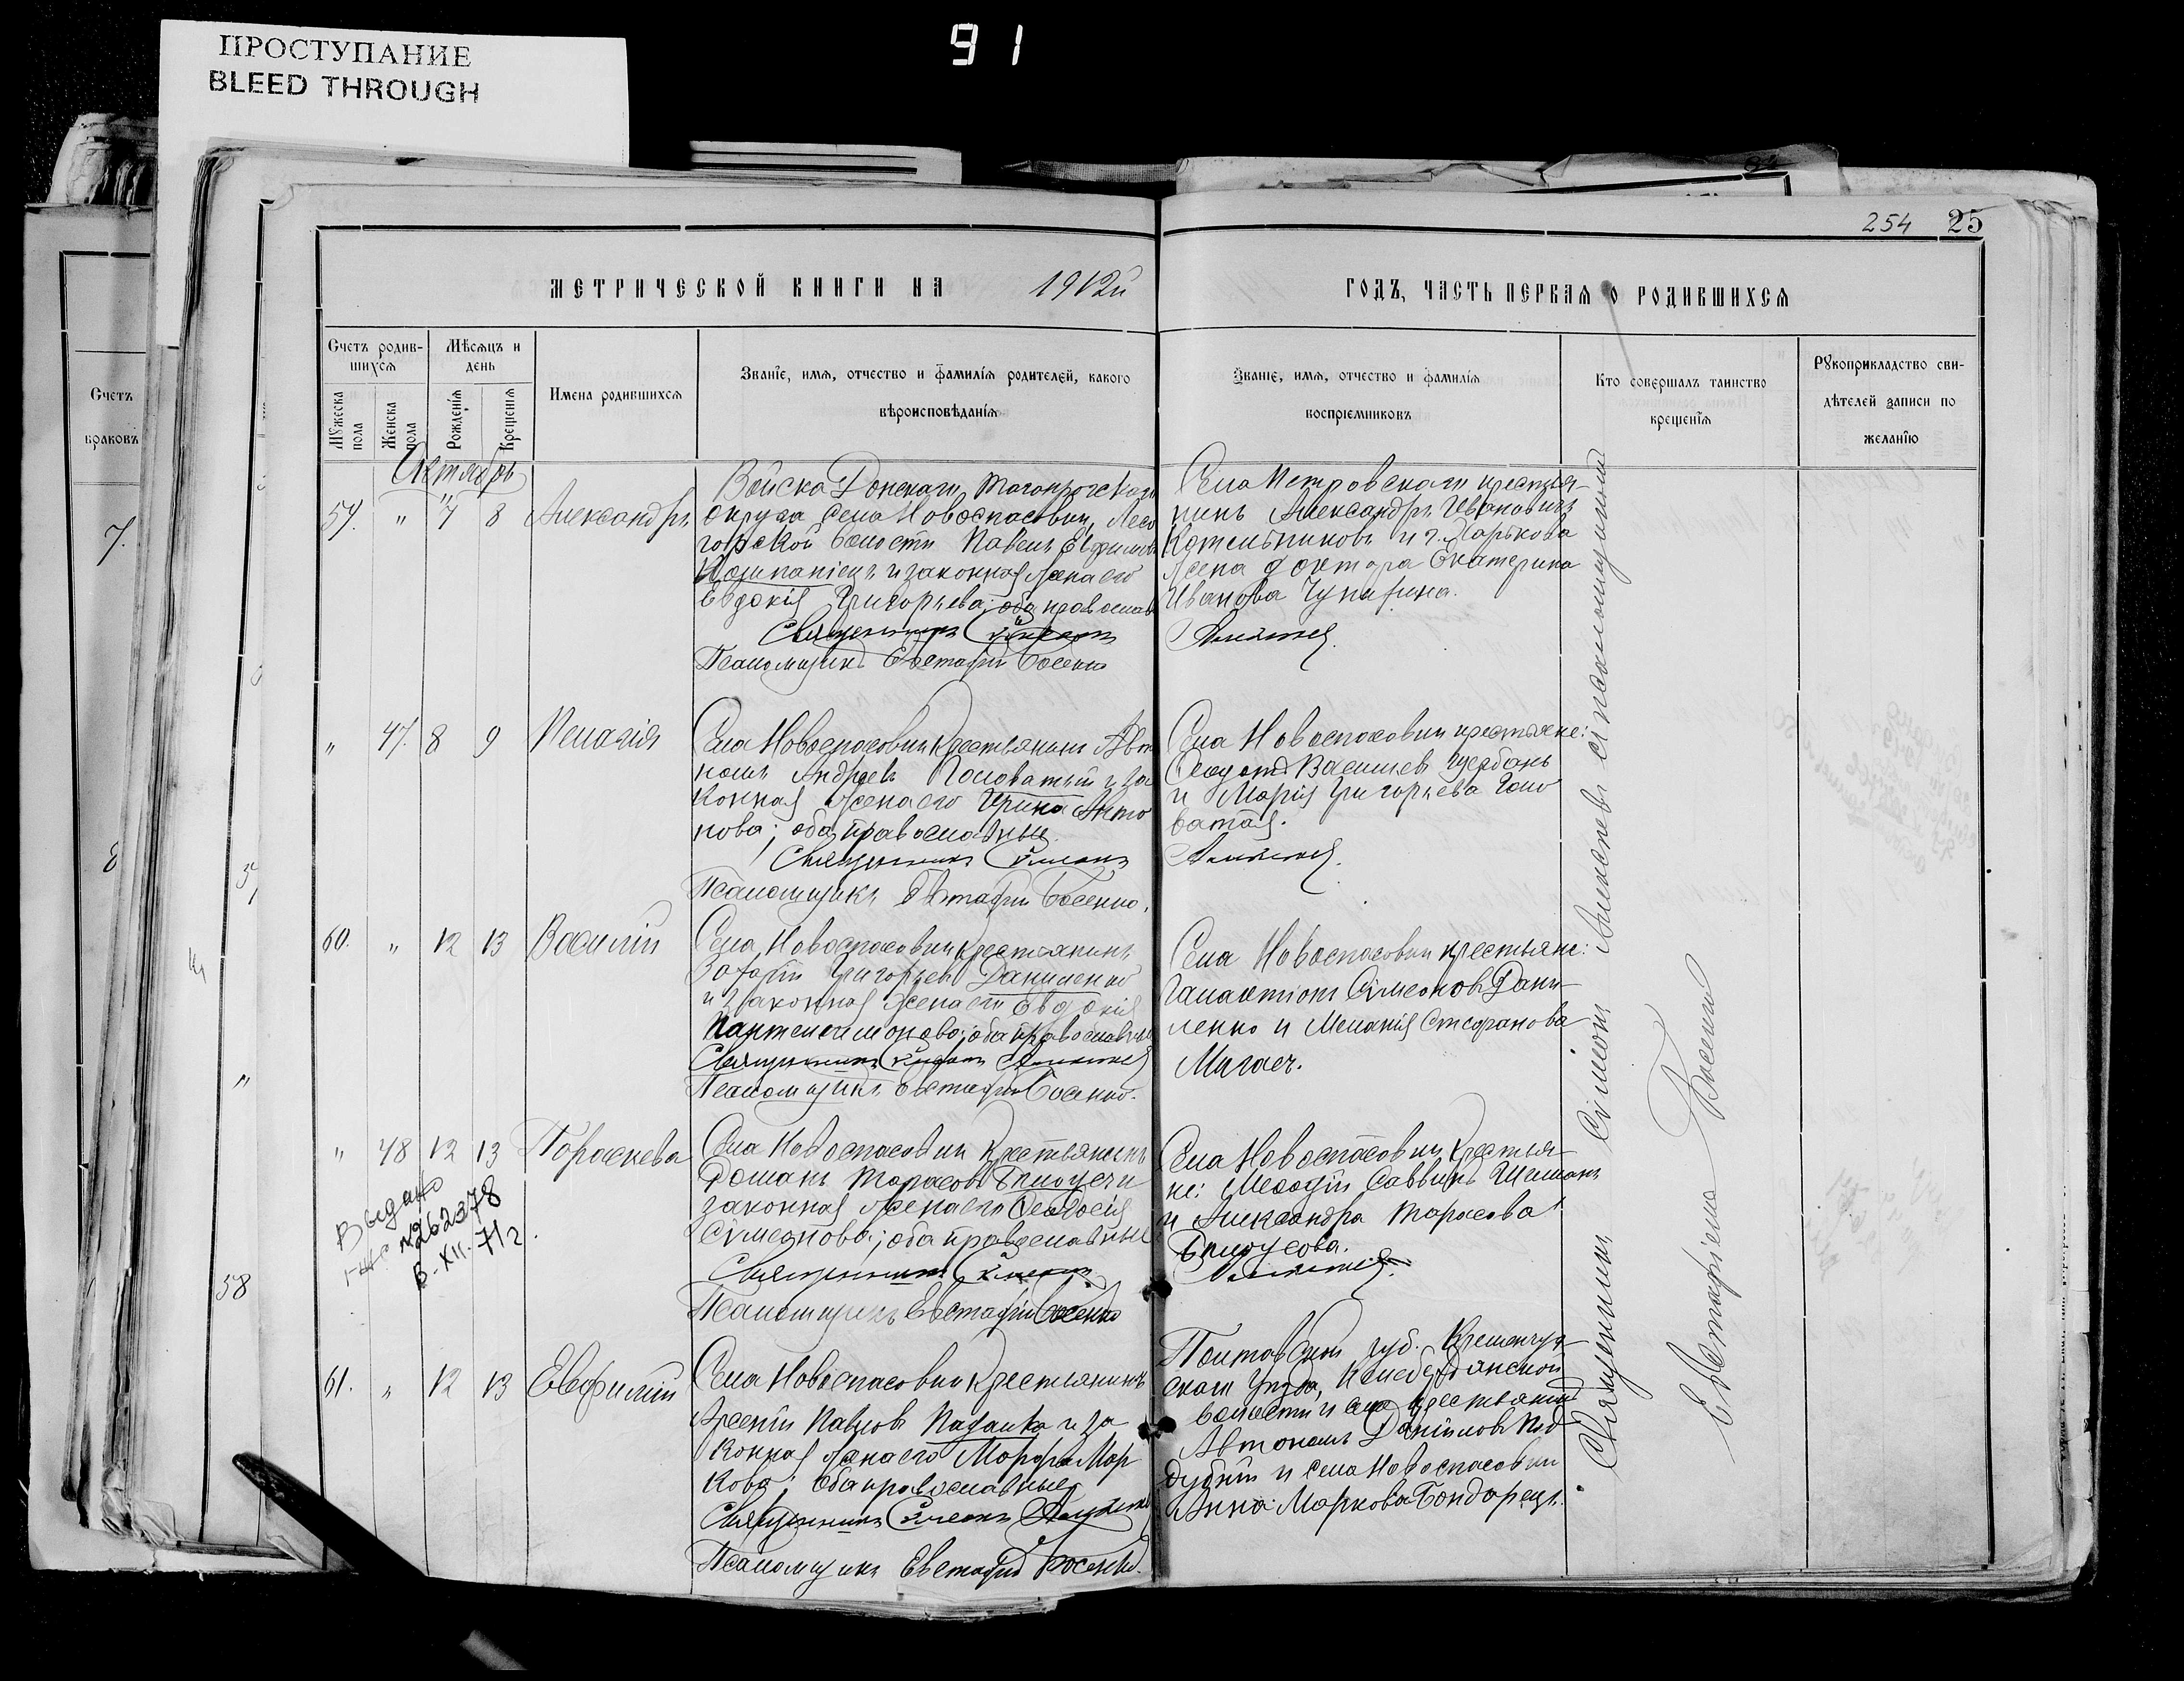 91
ПРОСТУПАНИЕ
BLEED THROUGH
254 25
МЕТРИЧЕСКОЙ КНИГИ НА 1912й ГОДЪ, ЧАСТЬ ПЕРВАЯ О РОДИВШИХСЯ
Счетъ
браковъ
7.
8
58
Счетъ родив-
шихся
Мужеска пола
Женска пола
Мѣсяцъ и
день
Рожденія
Крещенія
Имена родившихся
Званіе, имя, отчество и фамилія родителей, какого
вѣроисповѣданія
Званіе, имя, отчество и фамилія
воспріемниковъ
Кто совершалъ таинство
крещенія
Рукоприкладство сви-
дѣтелей записи по
желанію
Октябрь
59. " 7 8 Александръ
Войска Донскаго Таганрогскаго
округа села Новоспасовки,
горской волости Павелъ Евфимовъ
Компаніецъ и законная жена его
Евдокія Григорьева; оба православ
Священникъ Сѵмеонъ
Псаломщикъ Евстафій Босенко
Села Петровскаго крестья-
нинъ Александръ Ивановичъ
Котельниковъ и г. Харькова
жена доктора Екатерина
Иванова
" 47. 8 9 Пелагія
Села Новоспасовки крестьянинъ Авто
номъ Андреевъ Головатый и за
конная жена его Ирина Анто
нова; оба православные.
Священникъ Сѵмеонъ
Псаломщикъ Евстафій Босенко.
Села Новоспасовки крестьяне:
Ѳеодотъ Васильевъ Щербань
и Марія Григорьева Голо
ватая.
60. " 12 13 Василій
Села Новоспасовки крестьянинъ
Захарій Григорьевъ Даниленко
и законная жена его Евдокія
Пантелеимонова; оба православные
Священникъ Сѵмеонъ
Псаломщикъ Евстафій Босенко.
Села Новоспасовки крестьяне:
Галактіонъ Сѵмеоновъ Дани-
ленко и Меланія Стефанова
" 48 12 13 Параскева
Села Новоспасовки крестьянинъ
Романъ Тарасовъ Билоусъ и
законная жена его Ѳеодосія
Сѵмеонова; оба православные
Священникъ Сѵмеонъ
Псаломщикъ Евстафій Босенко
Села Новоспасовки крестья-
не: Меѳодій Саввинъ
и Александра Тарасова
Билоусова.
Выдано
№262378
8-XII-71г.
61. " 12 13 Евфимій
Села Новоспасовки крестьянинъ
Арсеній Павловъ Падалка и за
конная жена его Марфа Мар
кова; оба православные
Священникъ Сѵмеонъ
Псаломщикъ Евстафій Босенко.
Полтавской губ. Кременчуг-
скаго уѣзда, Келебердянской
волости и села крестьянинъ
Автономъ Даніиловъ Под
дубный и села Новоспасовки
Анна Маркова Бондарецъ.
Священникъ Сѵмеонъ съ псаломщикомъ
Евстафіемъ Босенко